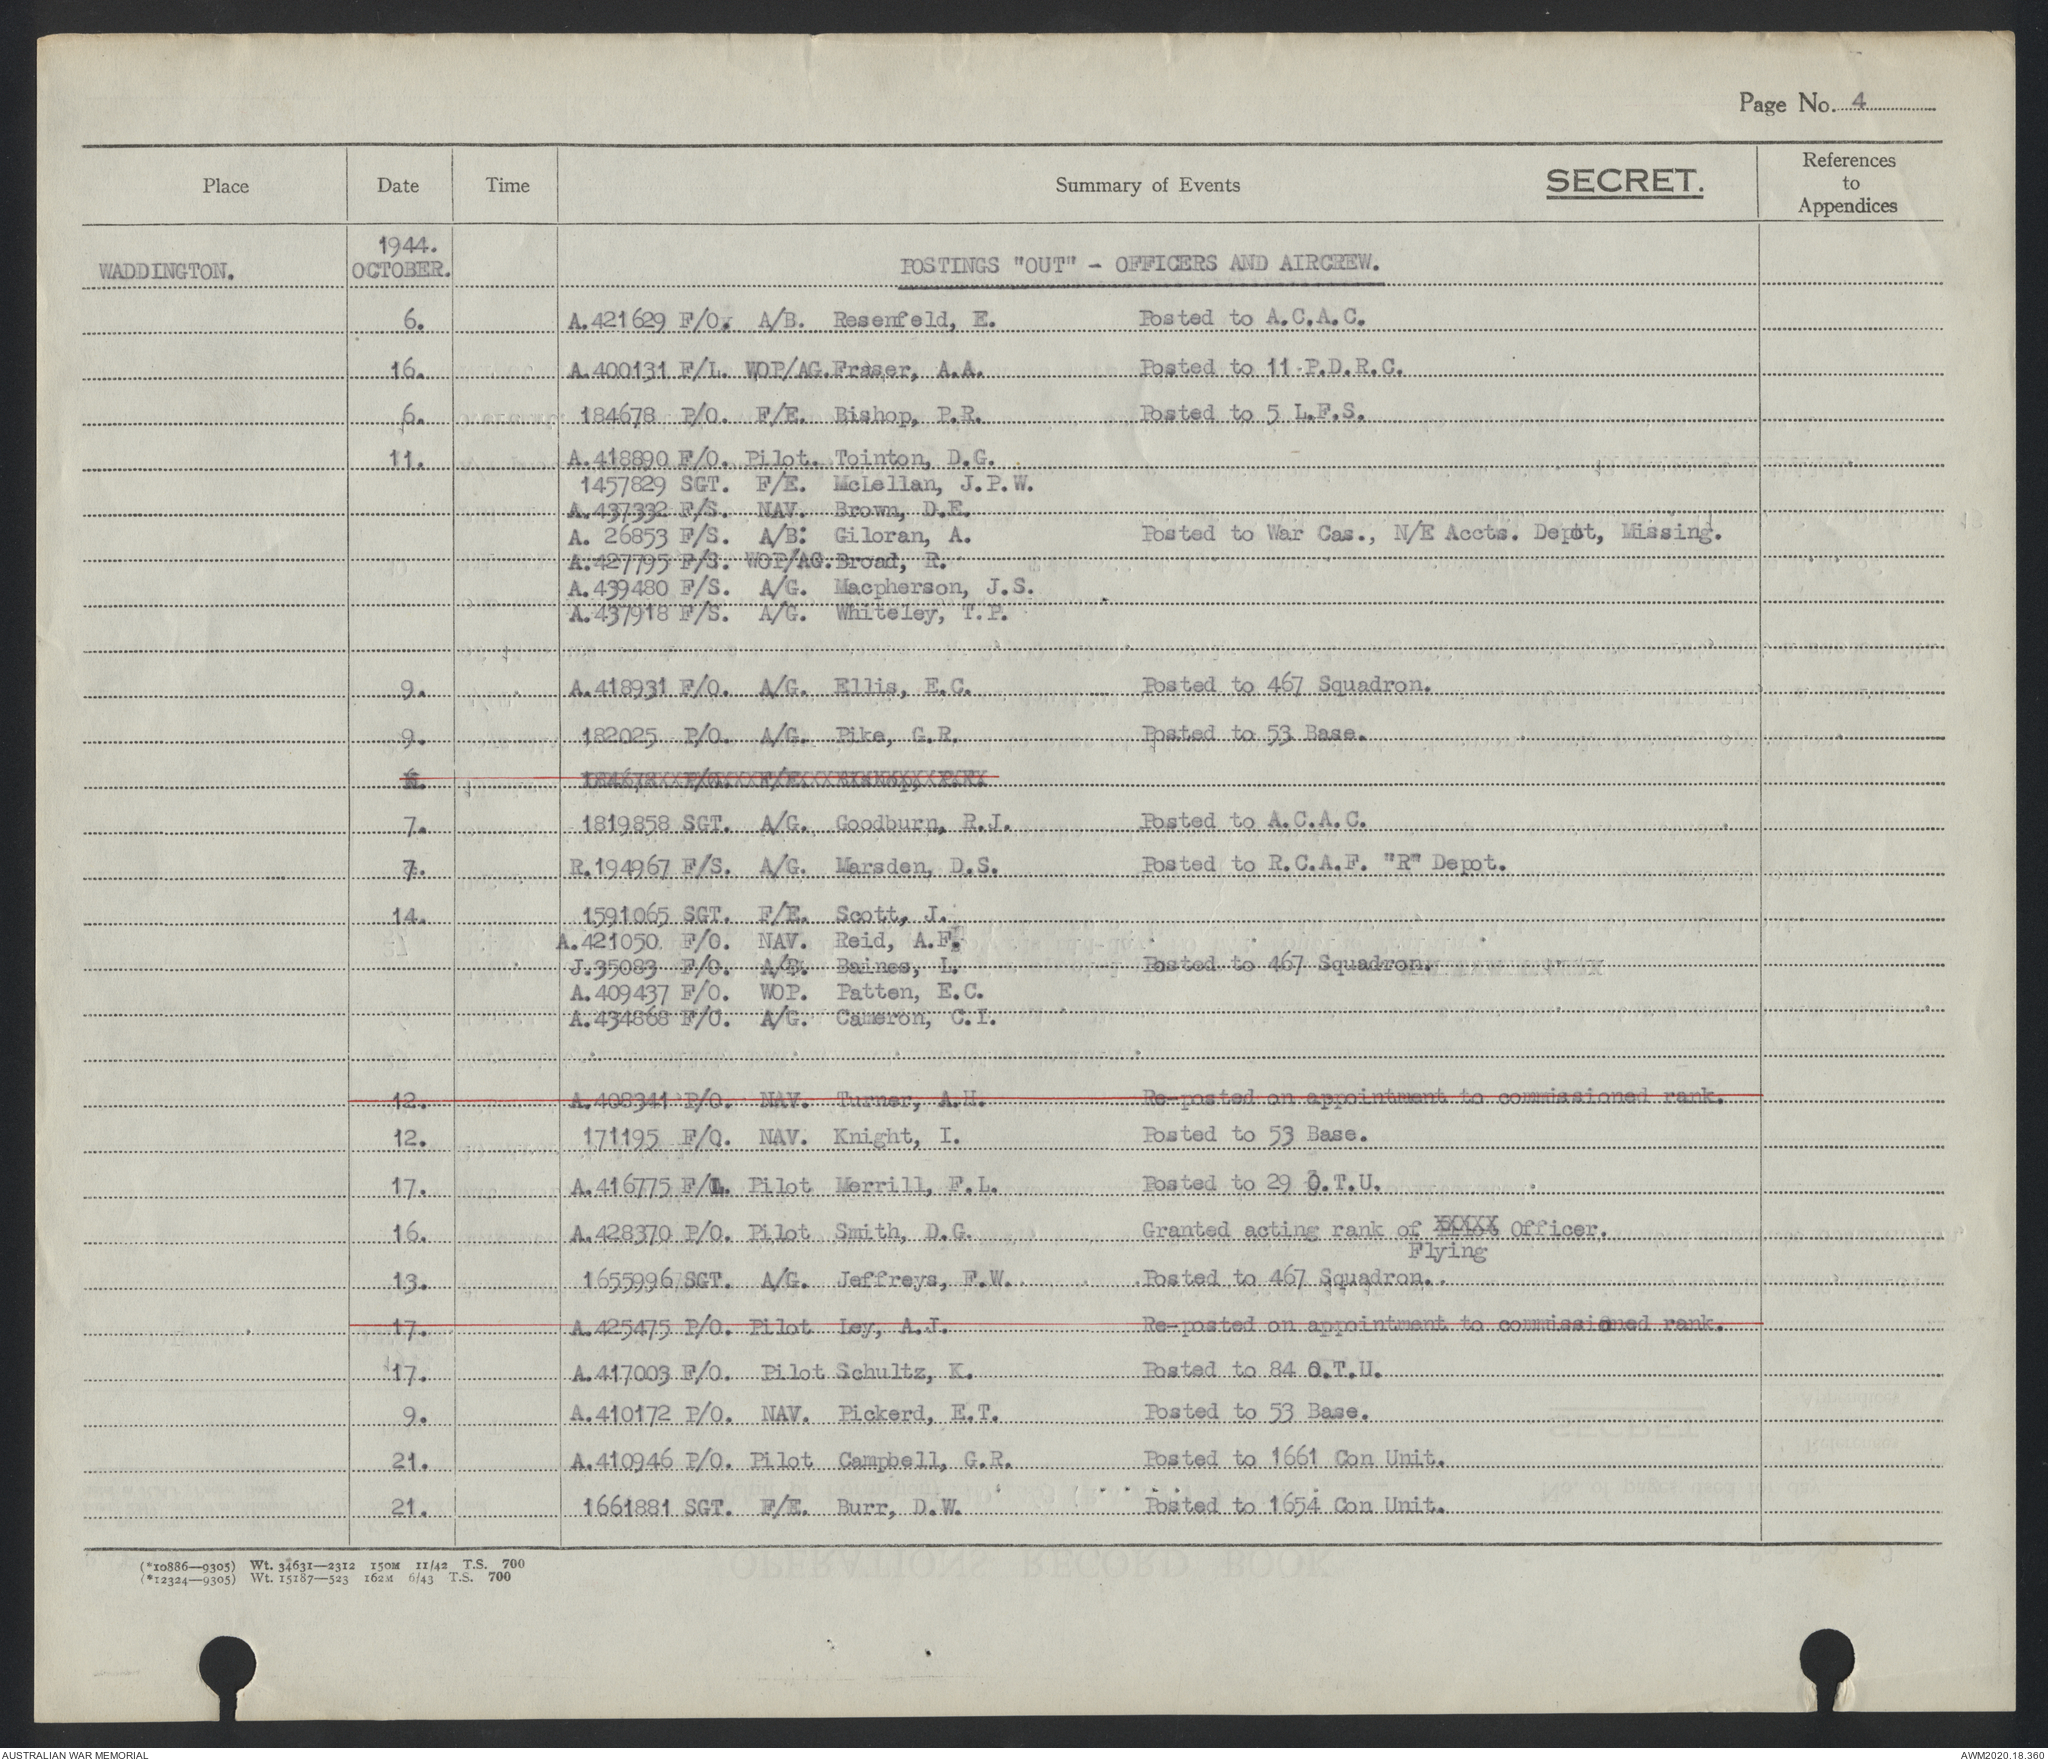 Page No. 4
Place Date Time Summary of Events SECRET. References to Appendices
1944.
WADDINGTON. OCTOBER. POSTINGS "OUT" - OFFICERS AND AIRCREW.
6. A.421629 F/O. A/B. Resenfeld, E. Posted to A.C.A.C.
16. A.400131 F/L. WOP/AG. Fraser, A.A. Posted to 11 P.D.R.C.
6. 184678 P/O. F/E. Bishop, P.R. Posted to 5 L.F.S.
11. A.418890 F/O. Pilot. Tointon, D.G.
1457829 SGT. F/E. McLellan, J.P.W.
A.437332 F/S. NAV. Brown, D.E.
A. 26853 F/S. A/B: Giloran, A. Posted to War Cas., N/E Accts. Depot, Missing.
A.427795 F/S. WOP/AG. Broad, R.
A.439480 F/S. A/G. Macpherson, J.S.
A.437918 F/S. A/G. Whiteley, T.P.
9. A.418931 F/O. A/G. Ellis, E.C. Posted to 467 Squadron.
9. 182025 P/O. A/G. Pike, G.R. Posted to 53 Base.
6. 184678 P/O. F/E. Bishop, P.R.
7. 1819858 SGT. A/G. Goodburn, R.J. Posted to A.C.A.C.
7. R.194967 F/S. A/G. Marsden, D.S. Posted to R.C.A.F. "R" Depot.
14. 1591065 SGT. F/E. Scott, J.
A.421050 F/O. NAV. Reid, A.F.
J.35083 F/O. A/B. Baines, L. Posted to 467 Squadron.
A.409437 F/O. WOP. Patten, E.C.
A.434868 F/O. A/G. Cameron, C.I.
12. A.408341 P/O. NAV. Turner, A.H. Re-posted on appointment to commissioned rank.
12. 171195 F/O. NAV. Knight, I. Posted to 53 Base.
17. A.416775 F/L. Pilot Merrill, F.L. Posted to 29 O.T.U.
16. A.428370 P/O. Pilot Smith, D.G. Granted acting rank of Pilot Officer.
Flying
13. 1655996 SGT. A/G. Jeffreys, F.W. Posted to 467 Squadron.
17. A.425475 P/O. Pilot Ley, A.J. Re-posted on appointment to commissioned rank.
17. A.417003 F/O. Pilot Schultz, K. Posted to 84 O.T.U.
9. A.410172 P/O. NAV. Pickerd, E.T. Posted to 53 Base.
21. A.410946 P/O. Pilot Campbell, G.R. Posted to 1661 Con Unit.
21. 1661881 SGT. F/E. Burr, D.W. Posted to 1654 Con Unit.
(*10886—9305) Wt. 34631—2312 150M 11/42 T.S. 700
(*12324—9305) Wt. 15187—523 162M 6/43 T.S. 700
AUSTRALIAN WAR MEMORIAL AWM2020.18.360